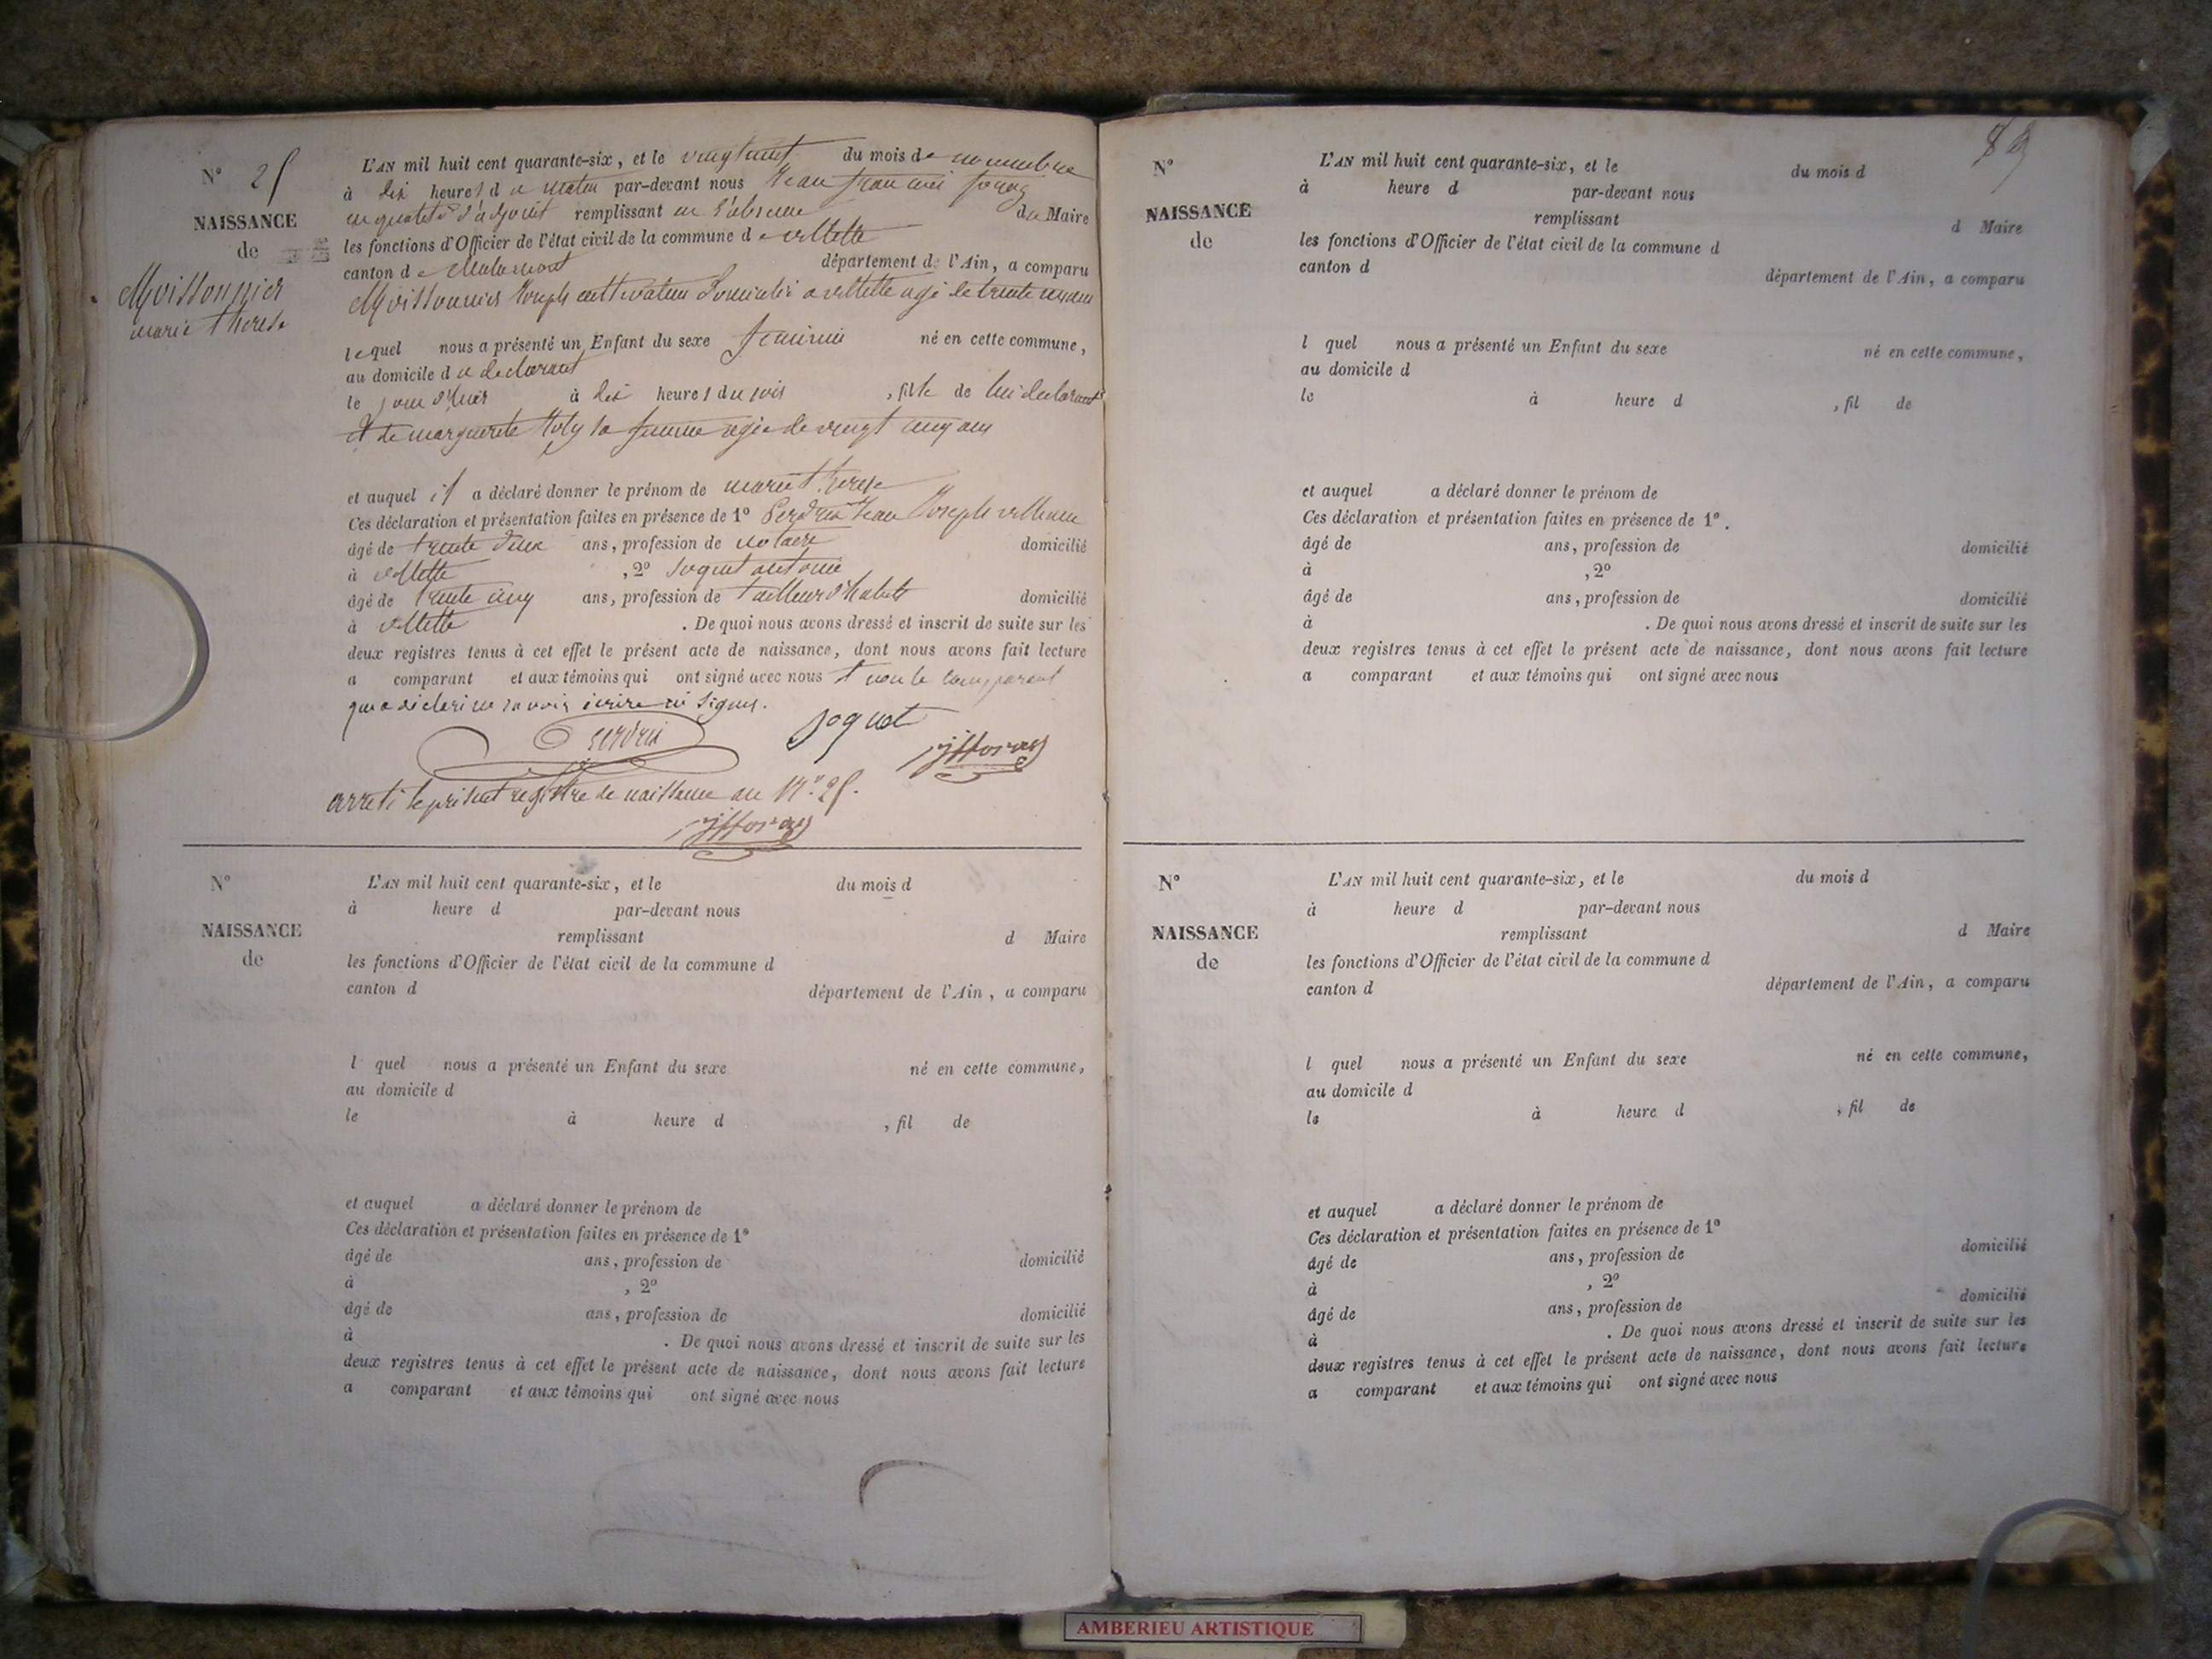 N° 25
NAISSANCE
de
Moissonnier
marie therese
L'AN mil huit cent quarante-six, et le vingt huit du mois de novembre
à dix heures du matin par-devant nous Jean françois
en qualité d'adjoint remplissant en l'absence du Maire
les fonctions d'Officier de l'état civil de la commune de villette
canton de Chalamont département de l'Ain, a comparu
Moissonnier Joseph cultivateur Domicilié a villette agé de trente
lequel nous a présenté un Enfant du sexe feminin né en cette commune,
au domicile du declarant
le jour d'hier à dix heures du soir , fille de lui declarant
et de marguerite Joly sa femme agée de vingt cinq ans
et auquel il a déclaré donner le prénom de marie therese
Ces déclaration et présentation faites en présence de 1° Perdrix Jean Joseph
âgé de trente deux ans, profession de notaire domicilié
à villette , 2° Joguet antoine
âgé de trente cinq ans, profession de tailleur d'habits domicilié
à villette . De quoi nous avons dressé et inscrit de suite sur les
deux registres tenus à cet effet le présent acte de naissance, dont nous avons fait lecture
a comparant et aux témoins qui ont signé avec nous et non le comparant
qui a déclaré ne savoir écrire ni signer.
Perdrix Joguet
arreté le présent registre de naissance au N° 25.
N°
NAISSANCE
de
L'AN mil huit cent quarante-six, et le du mois d
à heure d par-devant nous
remplissant d Maire
les fonctions d'Officier de l'état civil de la commune d
canton d département de l'Ain, a comparu
l quel nous a présenté un Enfant du sexe né en cette commune,
au domicile d
le à heure d , fil de
et auquel a déclaré donner le prénom de
Ces déclaration et présentation faites en présence de 1°
âgé de ans, profession de domicilié
à , 2°
âgé de ans, profession de domicilié
à . De quoi nous avons dressé et inscrit de suite sur les
deux registres tenus à cet effet le présent acte de naissance, dont nous avons fait lecture
a comparant et aux témoins qui ont signé avec nous
N°
NAISSANCE
de
L'AN mil huit cent quarante-six, et le du mois d
à heure d par-devant nous
remplissant d Maire
les fonctions d'Officier de l'état civil de la commune d
canton d département de l'Ain, a comparu
l quel nous a présenté un Enfant du sexe né en cette commune,
au domicile d
le à heure d , fil de
et auquel a déclaré donner le prénom de
Ces déclaration et présentation faites en présence de 1°.
âgé de ans, profession de domicilié
à , 2°
âgé de ans, profession de domicilié
à . De quoi nous avons dressé et inscrit de suite sur les
deux registres tenus à cet effet le présent acte de naissance, dont nous avons fait lecture
a comparant et aux témoins qui ont signé avec nous
N°
NAISSANCE
de
L'AN mil huit cent quarante-six, et le du mois d
à heure d par-devant nous
remplissant d Maire
les fonctions d'Officier de l'état civil de la commune d
canton d département de l'Ain, a comparu
l quel nous a présenté un Enfant du sexe né en cette commune,
au domicile d
le à heure d , fil de
et auquel a déclaré donner le prénom de
Ces déclaration et présentation faites en présence de 1°
âgé de ans, profession de domicilié
à , 2°
âgé de ans, profession de domicilié
à . De quoi nous avons dressé et inscrit de suite sur les
deux registres tenus à cet effet le présent acte de naissance, dont nous avons fait lecture
a comparant et aux témoins qui ont signé avec nous
AMBERIEU ARTISTIQUE